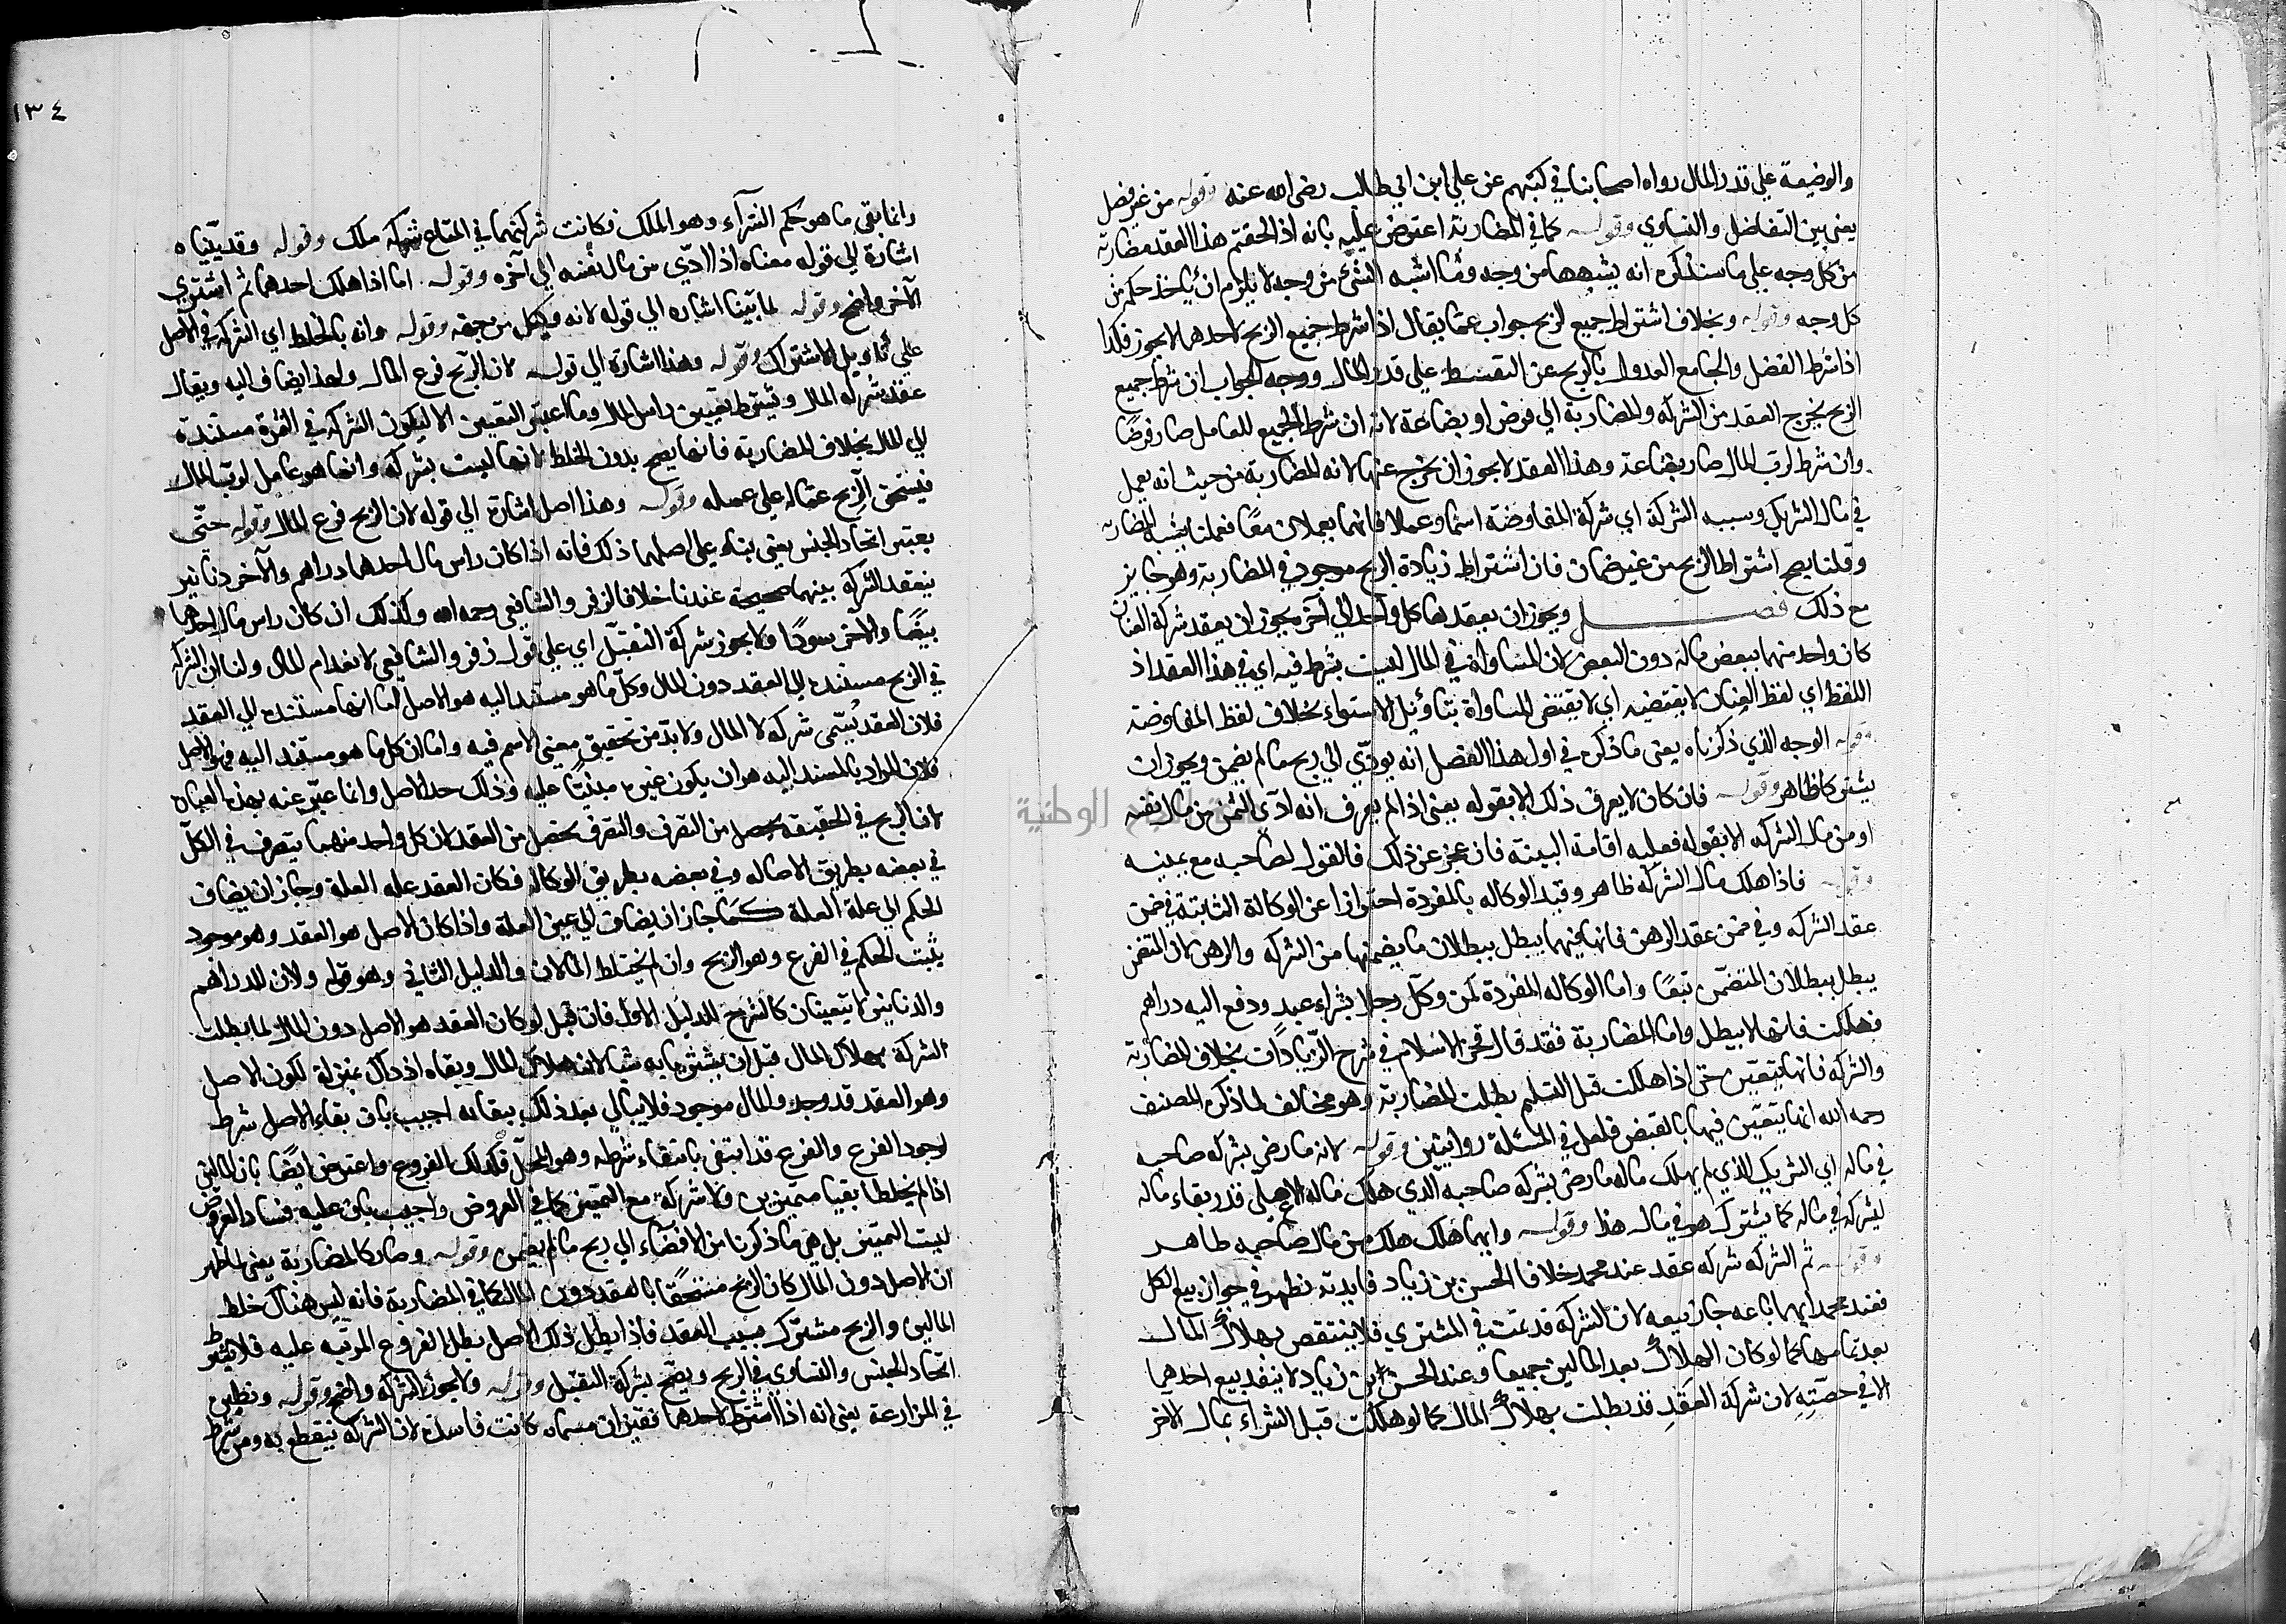 والوضيعة علي قدر المال رواه اصحابنا في كتبهم عن علي ابن ابي طالب رضى الله عنه وقوله من غير فصل
يعنى بين التفاضل والتساوي وقوله كما في المضاربة اعترض عليه بانه اذا الحقتم هذا العقد مضاربة
من كل وجه علي ما سنذكره انه يشبهها من وجه وما اشبه الشئ من وجه لا يلزم ان ياخذ حكمه من
كل وجه وقوله وبخلاف اشتراط جميع الربح جواب عما يقال اذا شرط جميع الربح لاحدهما لا يجوز فكذا
اذا شرط الفضل والجامع العدول بالربح عن التقسط علي قدر المال ووجه الجواب ان شرط جميع
الربح يخرج العقد من الشركه والمضاربة الي قرض او بضاعة لانه ان شرط الجميع للعامل صار قرضا
وان شرط لرب المال صار بضاعة وهذا العقد لا يجوز ان يخرج عنهما لانه المضاربة من حيث انه يعمل
في مال الشريك وسببه الشركة اي شركة المفاوضة اسما وعملا فانهما يعملان معا فعملنا بشبه المضاربه
وقلنا يصح اشتراط الربح من غير ضمان فان اشتراط زيادة الربح موجود في المضاربة وهو جايز
مع ذلك فصل ويجوز ان يعقدها كل واحد الي آخره يجوز ان يعقد شركة العنان
كان واحد منهما ببعض ماله دون البعض لان المساواة في المال ليست بشرط فيه اي في هذا العقد اذ
اللفظ اي لفظ العنان لا يقتضيه اي لا يقتضي المساواة بتأويل الاستواء بخلاف لفظ المفاوضة
وقوله الوجه الذي ذكرناه يعنى ما ذكره في اول هذا الفصل انه يودّي الي ربح ما لم يضمن ويجوز ان
يشتركا ظاهر وقوله فان كان لا يعرف ذلك الا بقوله يعنى اذا لم يعرف انه ادّي الثمن من مال نفسه
او من مال الشركه الا بقوله فعليه اقامة البينة فان عجز عن ذلك فالقول لصاحبه مع يمينه
وقوله فاذا هلك مال الشركه ظاهر وقيد الوكاله بالمفردة احترازا عن الوكالة الثابتة في ضمن
عقد الشركه وفي ضمن عقد الرهن فانها فيهما يبطل ببطلان ما يضمنها من الشركه والرهن لان المتضمن
يبطل ببطلان المتضمّن تبعا واما الوكاله المفردة كمن وكل رجلا بشراء عبد ودفع اليه دراهم
فهلكت فانها لا يبطل واما المضاربة فقد قال فخر الاسلام في شرح الزيادات بخلاف المضاربة
والشركه فانها يتعين حتى اذا هلكت قبل التسليم بطلت المضاربة وهو مخالف لما ذكره المصنف
رحمه الله انها يتعين فيها بالقبض فلعل في المسئلة روايتين وقوله لانه ما رضي بشركه صاحبه
في ماله اي الشريك الذي لم يهلك ماله ما رضي بشركه صاحبه الذي هلك ماله الا علي قدر بقاء ماله
ليشركه في ماله كما يشترك هو في مال هذا وقوله وايهما هلك هلك من مال صاحبه ظاهر
وقوله ثم الشركه شركه عقد عند محمد خلافا للحسن بن زياد فايدته تظهر في جواز بيع الكل
فعند محمد ايهما باعه جاز بيعه لان الشركة قد تمت في المشتري فلا ينتقض بهلاك المال
بعد تمامها كما لو كان الهلاك بعد المالين جميعا وعند الحسن ابن زياد لا ينفد بيع احدهما
الا في حصّتهِ لان شركة العقدِ قد بطلت بهلاك المال كما لو هلكت قبل الشراء بمال الاخر
١٣٤
وانما بقى ما هو حكم الشرآء وهو الملك فكانت شركتهما في المتاع شركه ملك وقوله وقد بيّناه
اشارة الي قوله معناه اذا ادّي من مال نفسه الي آخره وقوله اما اذا هلك احدهما ثم اشترى
الآخر واضح وقوله لما بيّنا اشاره الي قوله لانه وكيل من جهته وقوله وانه بالخلط اي الشركه في الاصل
علي تأويل الاشتراك وقوله وهذا اشارة الي قوله لان الربح فرع المال ولهذا يضاف اليه ويقال
عقد شركه المال ويشترط تعيين راس المال وما اعتبر التعيين الا ليكون الشركه في الثمرة مستندة
الي المال بخلاف المضاربة فانها يصح بدون الخلط لانها ليست بشركه وانما هو عامل لرب المال
فيستحق الربح عماله علي عمله وقوله وهذا اصل اشارة الي قوله لان الربح فرع المال وقوله حتّى
يعتبر اتحاد الجنس يعنى بناء علي اصلهما ذلك فانه اذا كان راس مال احدهما دراهم والآخر دنانير
ينعقد الشركه بينهما صحيحة عندنا خلافا لزفر والشافعي رحمه الله وكذلك ان كان راس مال احدهما
بيضا والآخر سودا ولا يجوز شركة التقبّل اي علي قول زفر والشافعي لانعدام المال ولنا ان الشركه
في الربح مستنده الي العقد دون المال وكل ما هو مستند اليه هو الاصل اما انها مستنده الي العقد
فلان العقد يسّمى شركه لا المال ولا بدّ من تحقيق معنى الاسم فيه واما ان كل ما هو مستند اليه فهو الاصل
فلان المراد بالمسند اليه هو ان يكون غيره مبنيا عليه وذلك حد الاصل وانما عبّر عنه بهذه العباره
لان الربح في الحقيقه يحصل من التصرف والتصرف يحصل من العقد لان كل واحد منهما يتصرف في الكل
في بعضه بطريق الاصاله وفي بعضه بطريق الوكاله فكان العقد علة العلة وجاز ان يضاف
الحكم الي علة العلة كما جاز ان يضاف الي عين العلة واذا كان الاصل هو العقد وهو موجود
يثبت الحكم في الفرع وهو الربح وان لم يختلط المالان والدليل الثاني وهو قوله ولان الدراهم
والدنانير لا يتعينان كالشرح للدليل الاول فان قيل لو كان العقد هو الاصل دون المال لما بطلت
الشركة بهلاك المال قبل ان يشتريا به شيا لان هلاك المال وبقاه اذ ذاك بمنزلة لكون الاصل
وهو العقد قد وجد والمال موجود فلا يبالي بعد ذلك ببقائه اجيب بان بقاء الاصل شرط
لوجود الفرع والفرع قد انتفى بانتفاء شرطه وهو المحل فكذلك الفروع واعترض ايضا بان المالين
اذا لم يخلطا بقيا متميزين ولا شركة مع التميز كما في العروض واجيب بان علة فساد العروض
ليست التميّز بل هي ما ذكرنا من الافضاء الي ربح ما لم يضمن وقوله وصار كالمضاربة يعنى لما ظهر
ان الاصل دون المال كان الربح مستحقا بالعقد دون المال كما في المضاربة فانه ليس هناك خلط
المالين والربح مشترك بسبب العقد فاذا بطل ذلك الاصل بطل الفروع المرتبه عليه فلا يشترط
اتحاد الجنس والتساوى في الربح ويصح بشركة التقبّل وقوله ولا يجوز الشركه واضح وقوله ونظيره
في المزارعة يعنى انه اذا اشترط لاحدهما قفيزان مسماه كانت فاسدة لان الشركه ينقطع به ومن شرط